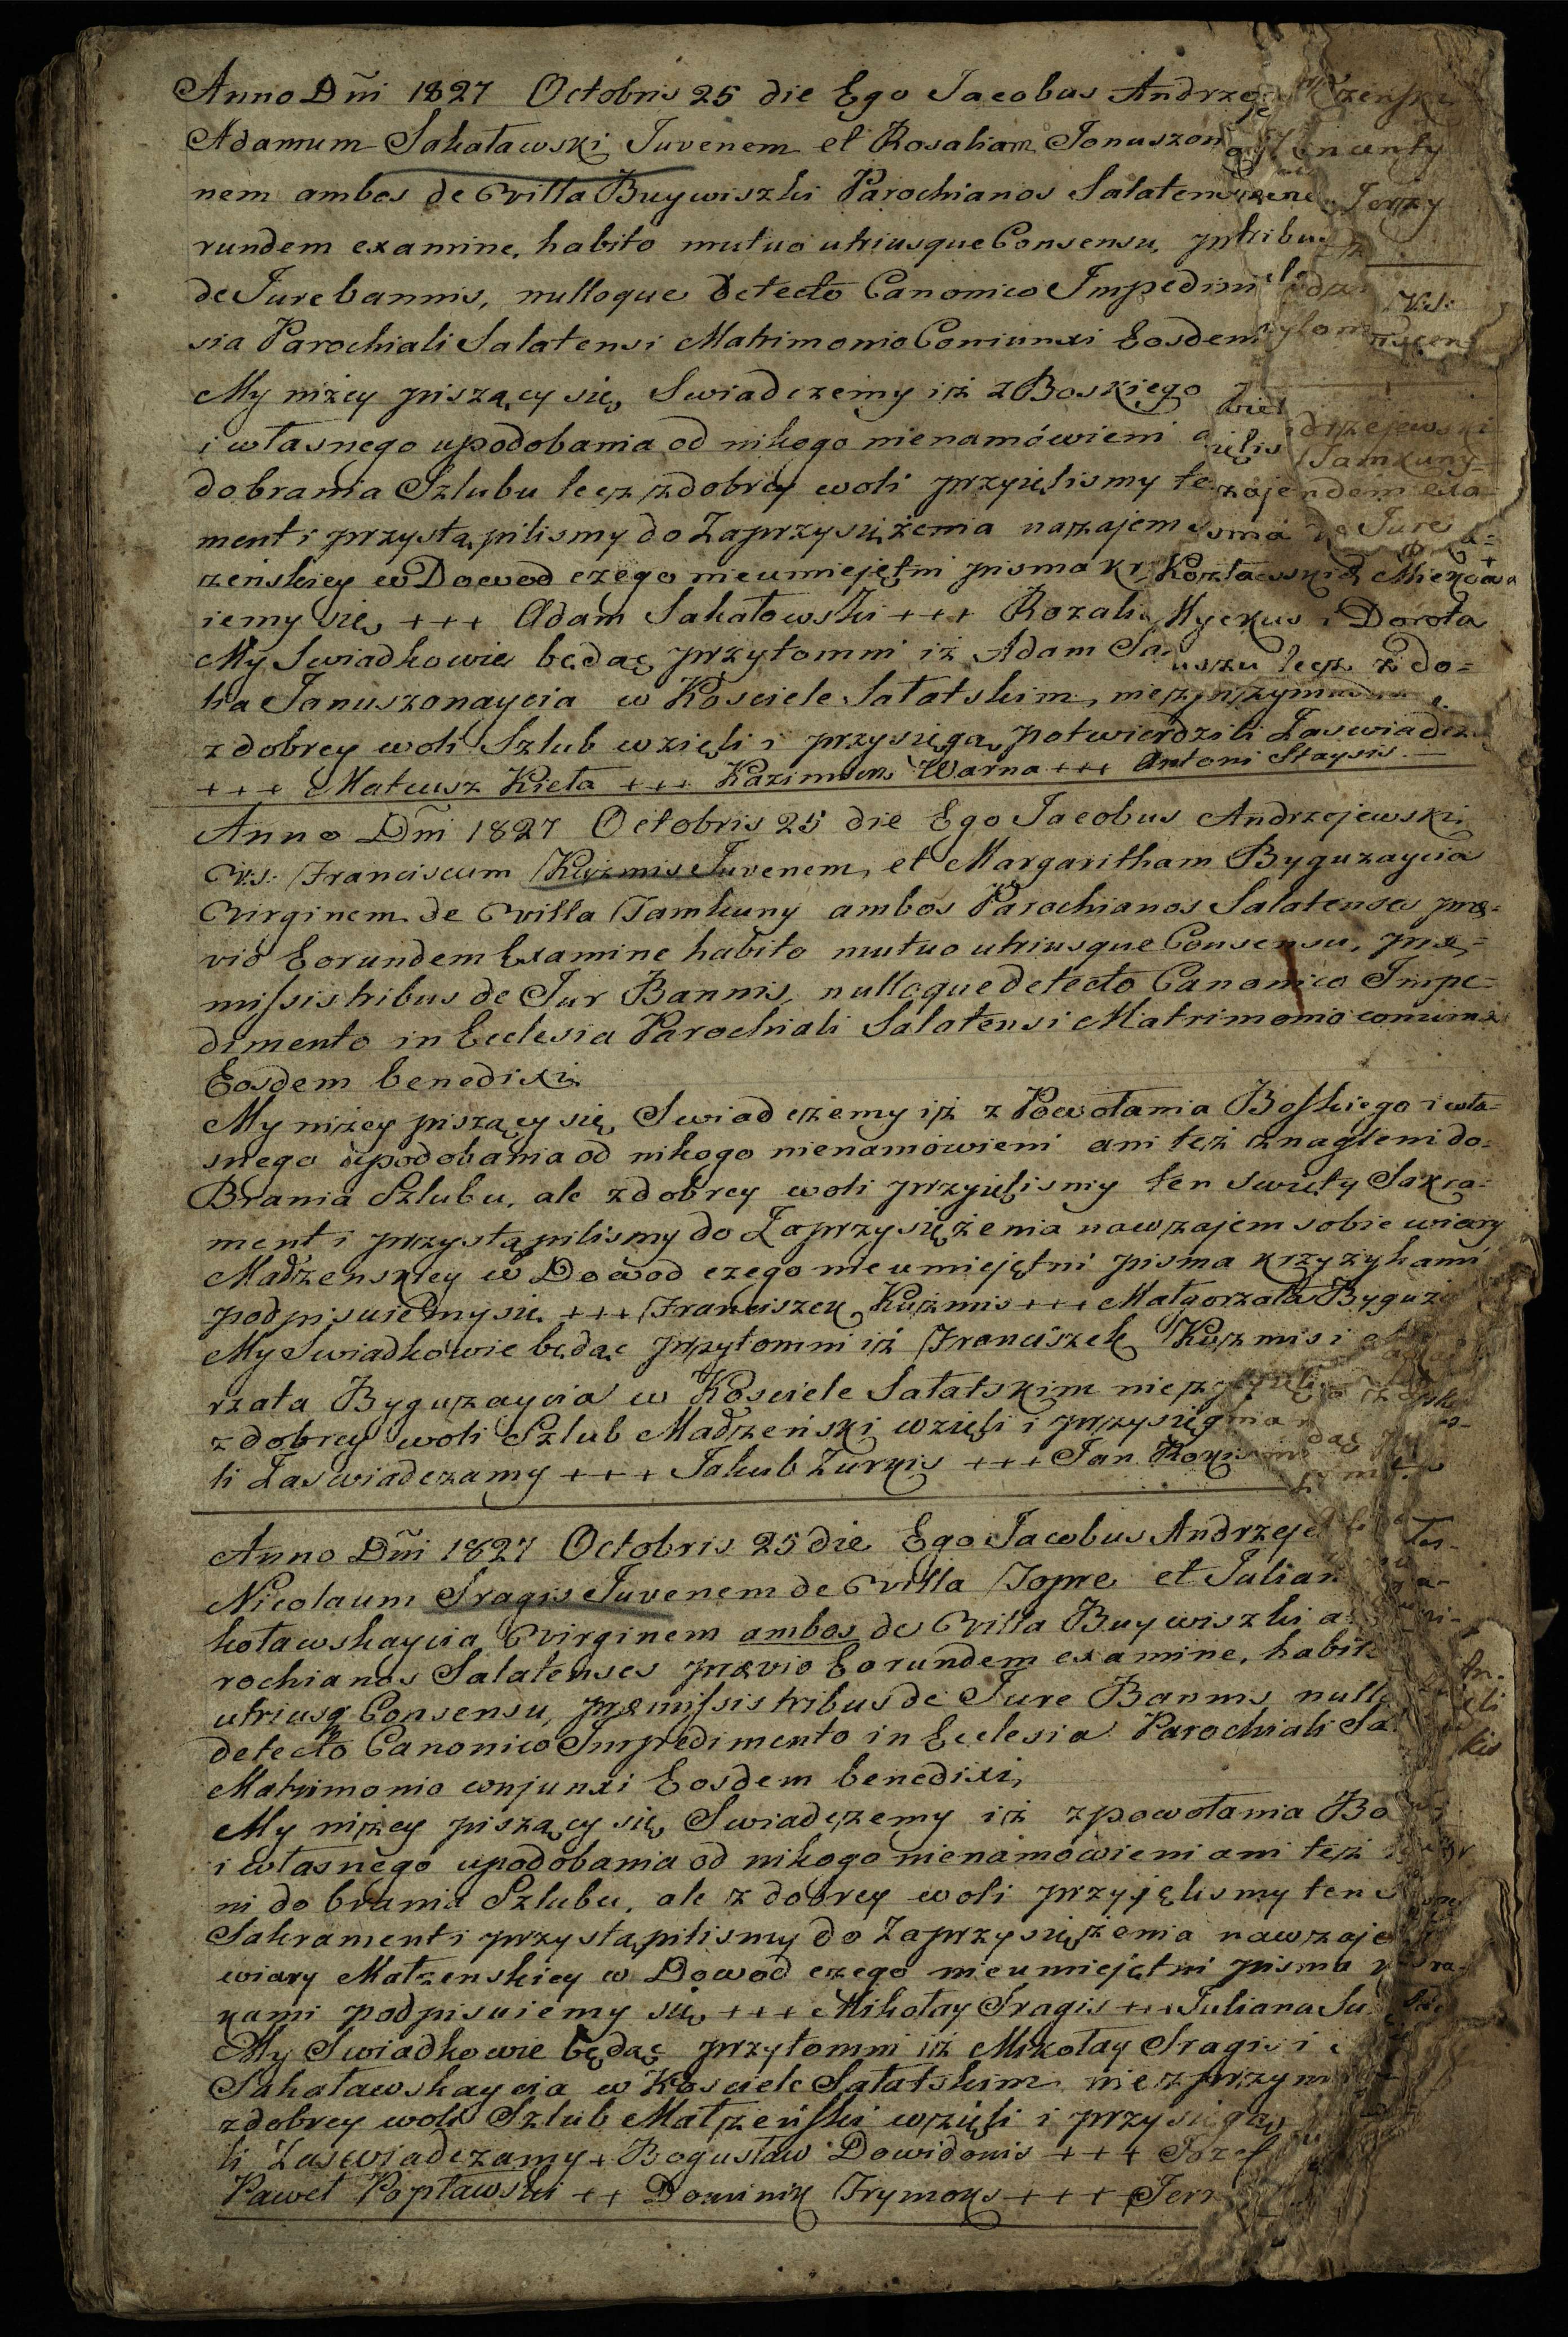 Anno Dñi 1827 Octobris 25 die Ego Jacobus Andrzeje
Adamum Sakatawski Juvenem et Rosaliam Jonuszon
nem ambos de Villa Buywiszki Parochianos Salatens
rundem examine, habito mutuo utriusque Consensu, tribus
de Jure bannis, nulloque detecto Canonico Impedim
sia Parochiali Salatensi Matrimonio Coniunxi Eosdem
My niżey piszący się, Swiadczemy iż z Boskiego
i własnego upodobania od nikogo nienamówieni
do brania Szlubu lecz z dobrey woli przyięlismy te
ment i przystąpilismy do Zaprzysiężenia nazajem
żeńskiey w Dowod czego nieumiejętni pisma kr
iemy się, +++ Adam Sakatowski +++ Rozali
My Swiadkowie będąc przytomni iż Adam Sa
lia Januszonaycia w Kosciele Sałatskim, nie
z dobrey woli Szlub wzięli i przysięgą potwierdzili Zaswiadcz
+++ Mateusz Kieta +++ Kazimierz Warna +++ Antoni Staysis
Anno Dñi 1827 Octobris 25 die Ego Jacobus Andrzejewski
V:s: Franciscum Kuzmis Juvenem, et Margaritham Byguzaycia
Virginem de Villa Jamkuny ambos Parochianos Salatenses præ-
vio Eorundem Examine habito mutuo utriusque Consensu, præ-
missis tribus de Jur Bannis, nulloque detecto Canonico Impe-
dimento in Ecclesia Parochiali Salatensi Matrimonio coniunxi
Eosdem benedixi
My niżey piszący się, Swiadczemy iż z Powołania Boskiego i wła-
snego upodobania od nikogo nienamowieni ani też znagleni do-
Brania Szlubu, ale z dobrey woli przyięlismy ten swięty Sakra-
ment i przystąpilismy do Zaprzysiężenia nawzajem sobie wiary
Madżenskiey w Dowod czego nieumiejętni pisma krzyżykami
podpisuiemy się +++ Franciszek Kuzmis +++ Małgorzata Byguza
My Swiadkowie będąc przytomni iż Franciszek Kuzmis i
rzata Byguzaycia w Kosciele Sałatskim
z dobrey woli Szlub Madżeński wzięli i przysięg
li Zaswiadczamy +++ Jakub Zurkis +++ Jan
Anno Dñi 1827 Octobris 25 die Ego Jacobus Andrzeje
Nicolaum Sragis Juvenem de Villa Jopre et Julian
kotawskaycia Virginem ambos de Villa Buywiszki a
rochianos Salatenses prævio Eorundem examine, habit
utriusq Consensu, præmissis tribus de Jure Bannis null
detecto Canonico Impedimento in Ecclesia Parochiali Sa
Matrimonio conjunxi Eosdem benedixi,
My niżey piszący się, Swiadczemy iż z powołania Bo
i własnego upodobania od nikogo nienamowieni ani też
ni do brania Szlubu, ale z dobrey woli przyjęlismy ten
Sakrament i przystąpilismy do Zaprzysiężenia nawzaje
wiary Matzenskiey w Dowod czego nieumiejętni pisma
kami podpisuiemy się, +++ Mikołay Sragis +++ Juliana Sa
My Swiadkowie będąc przytomni iż Mikołay Sragis i
Sakatawskaycia w Kosciele Sałatskim nieprzym
z dobrey woli Szlub Matżeński wzięli i przysięgą
li Zaswiadczamy + Bogusław Dowidonis +++ Jozef
Paweł Popławski ++ Dominik Trymoks +++ Jerz